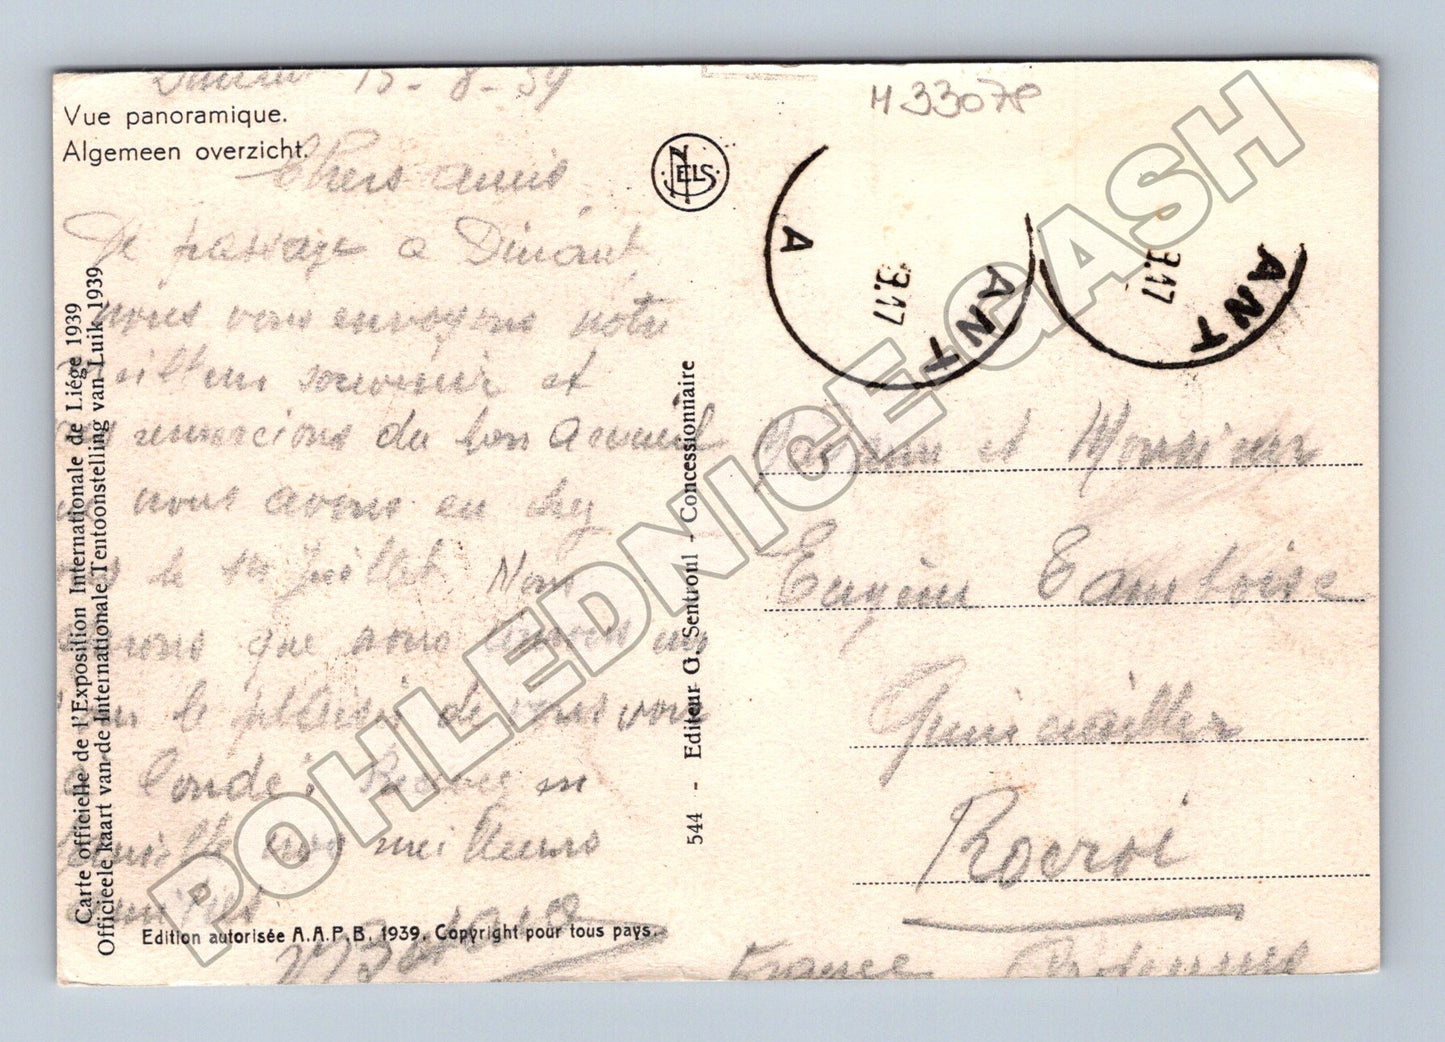 15-8-39
Vue panoramique.
Algemeen overzicht.
Chers amis
De passage a Dinant
nous vous envoyons notre
souvenir et
du bon accueil
nous avons eu chez
le 14 juillet Nous
que nous aurons
le plaisir de vous voir
a Condé. Recevez
nos meilleurs
amitiés
Carte officielle de l'Exposition Internationale de Liége 1939
Officieele kaart van de Internationale Tentoonstelling van Luik 1939
Edition autorisée A.A.P.B. 1939. Copyright pour tous pays.
NELS
544 - Editeur G. Sentroul - Concessionnaire
H 33078
A
ANT
3.17
ANT
3.17
Madame et Monsieur
Eugène
Quincaillier
Rocroi
France Ardennes
POHLEDNICE-GASH